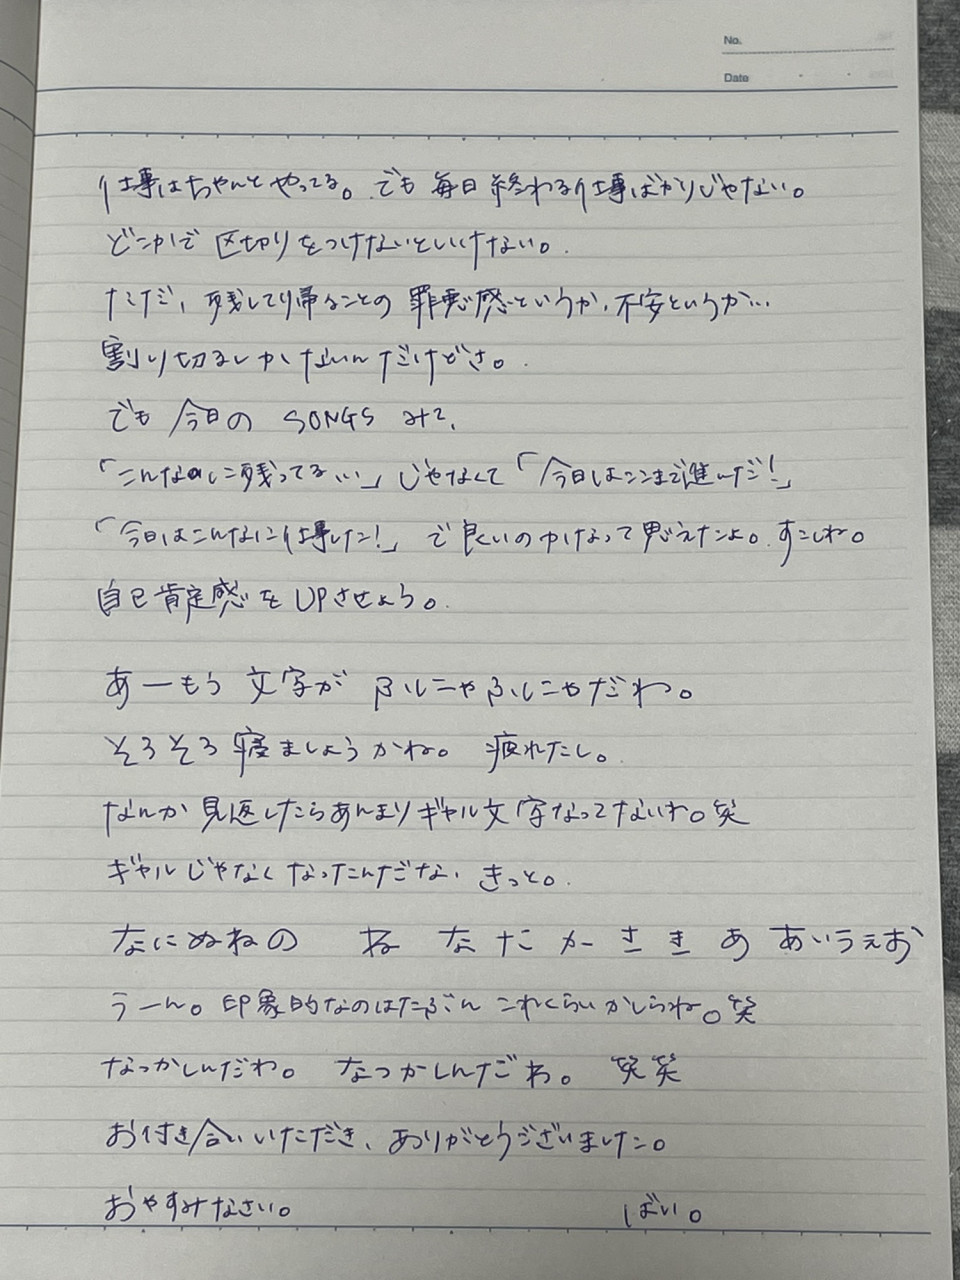 No.
Date
仕事はちゃんとやってる。でも毎日終わる仕事ばかりじゃない。
どこかで区切りをつけないといけない。
ただ、残して帰ることの罪悪感というか、不安というか…
割り切るしかないんだけどさ。
でも今日のSONGSみて、
「こんなに残ってる…」じゃなくて「今日はここまで進んだ！」
「今日はこんなに仕事した！」で良いのかなって思えたよ。すこしね。
自己肯定感をUPさせよう。
あーもう文字がふにゃふにゃだわ。
そろそろ寝ましょうかね。疲れたし。
なんか見返したらあんまりギャル文字なってないわ。笑
ギャルじゃなくなったんだな、きっと。
なにぬねの ね な た か さ き あ あいうえお
うーん。印象的なのはたぶんこれくらいかしらね。笑
なつかしんだわ。なつかしんだわ。笑笑
お付き合いいただき、ありがとうございました。
おやすみなさい。 ばい。